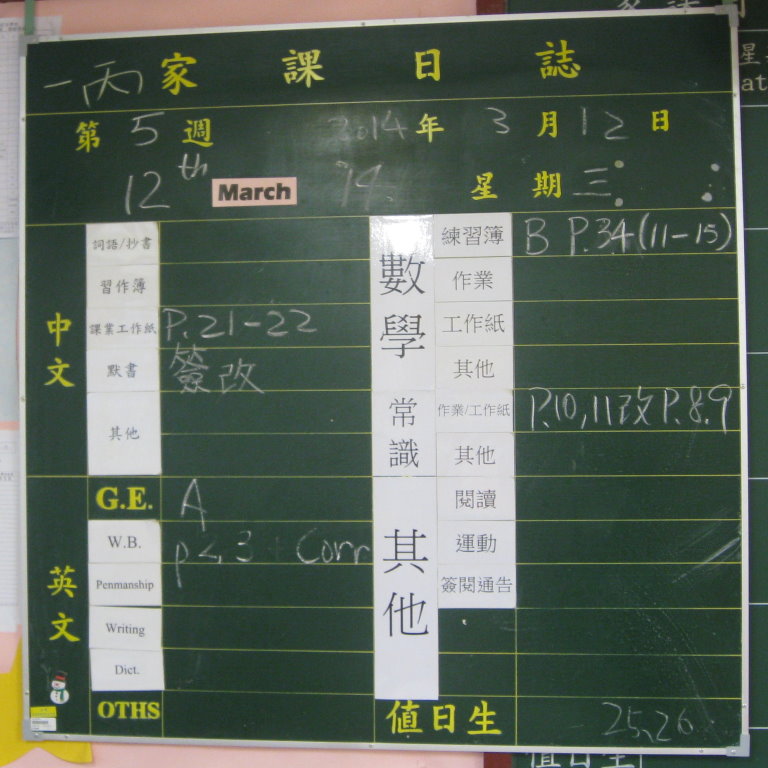 一丙 家課日誌
第 5 週 2014 年 3 月 12 日
12th March 14. 星期三
中文
詞語/抄書
習作簿
課業工作紙 P.21-22
默書 簽改
其他
英文
G.E. A
W.B. Corr
Penmanship
Writing
Dict.
OTHS
數學
練習簿 B P.34(11-15)
作業
工作紙
其他
常識
作業/工作紙 P.10,11改P.8.9
其他
其他
閱讀
運動
簽閱通告
值日生 25,26
值日生